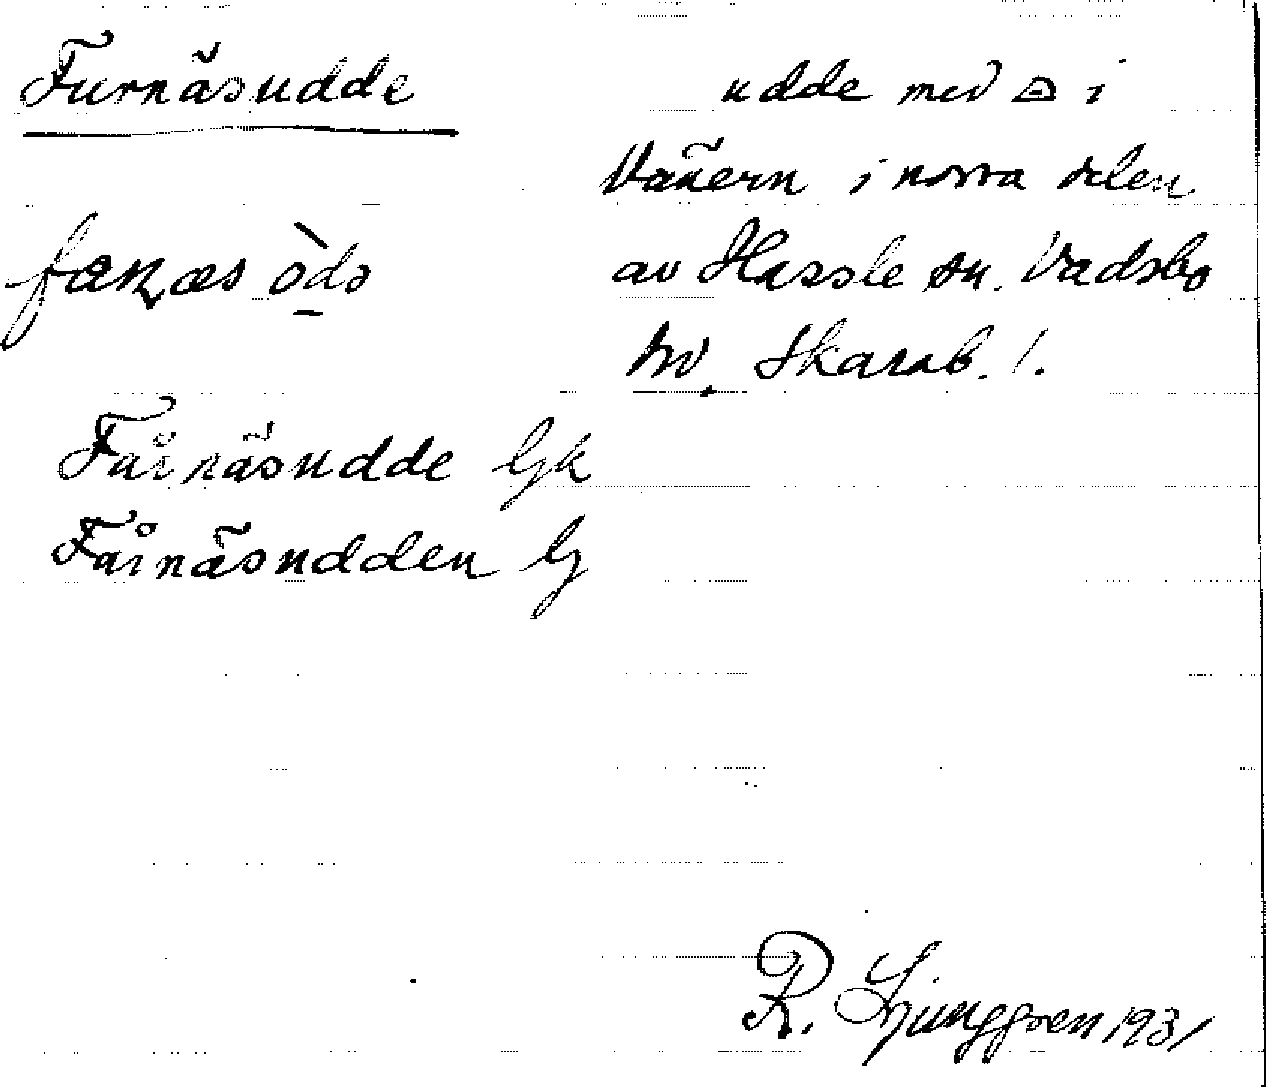 Furnäsudde
udde med i
Vänern i norra delen
av Hassle sn. Vadsbo
hd. Skarab. l.
Fårnäsudde Gk
Fårnäsudden G
R. Ljunggren 1931